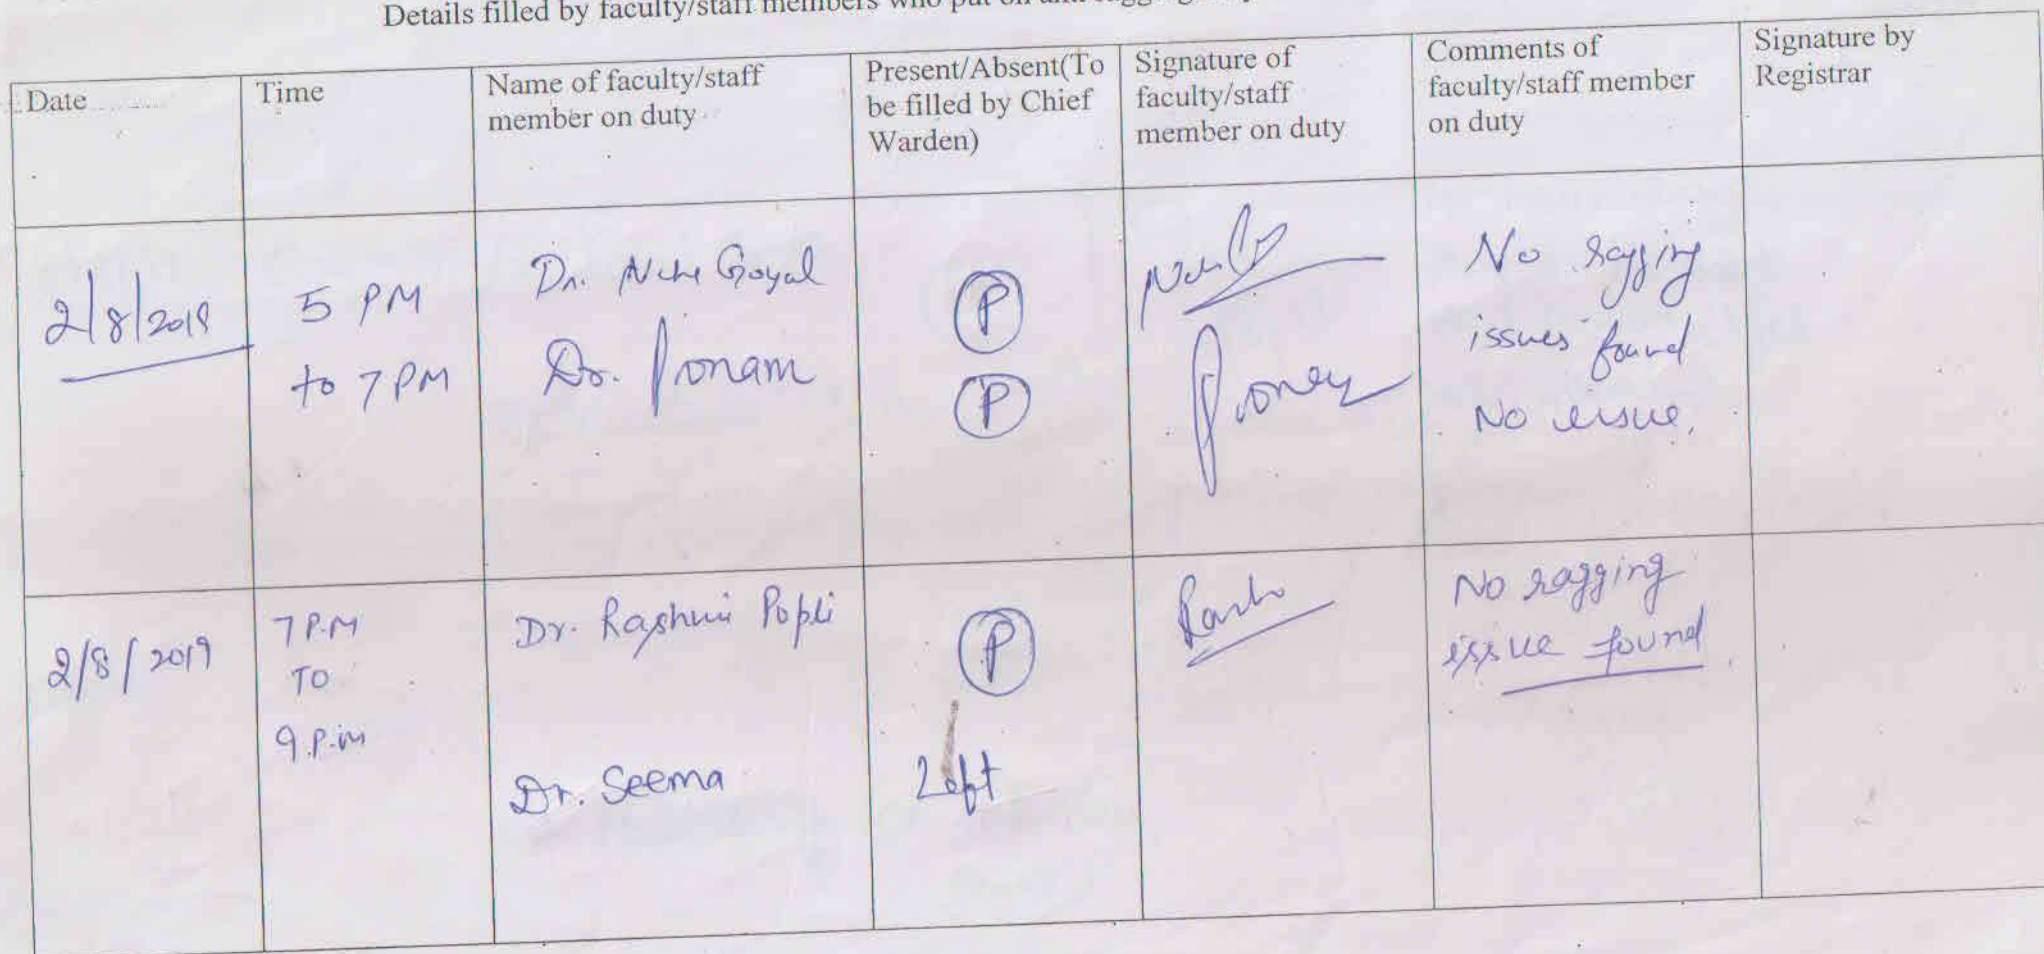 Details filled by faculty/staff members who put on
Date
Time
Name of faculty/staff
member on duty
Present/Absent(To
be filled by Chief
Warden)
Signature of
faculty/staff
member on duty
Comments of
faculty/staff member
on duty
Signature by
Registrar
2/8/2019
5 PM
to 7 PM
Dr. Neha Goyal
Dr. Poonam
P
P
No ragging
issues found
No issue.
2/8/2019
7 P.M
TO
9.P.m
Dr. Rashmi Popli
Dr. Seema
P
Left
No ragging
issue found.